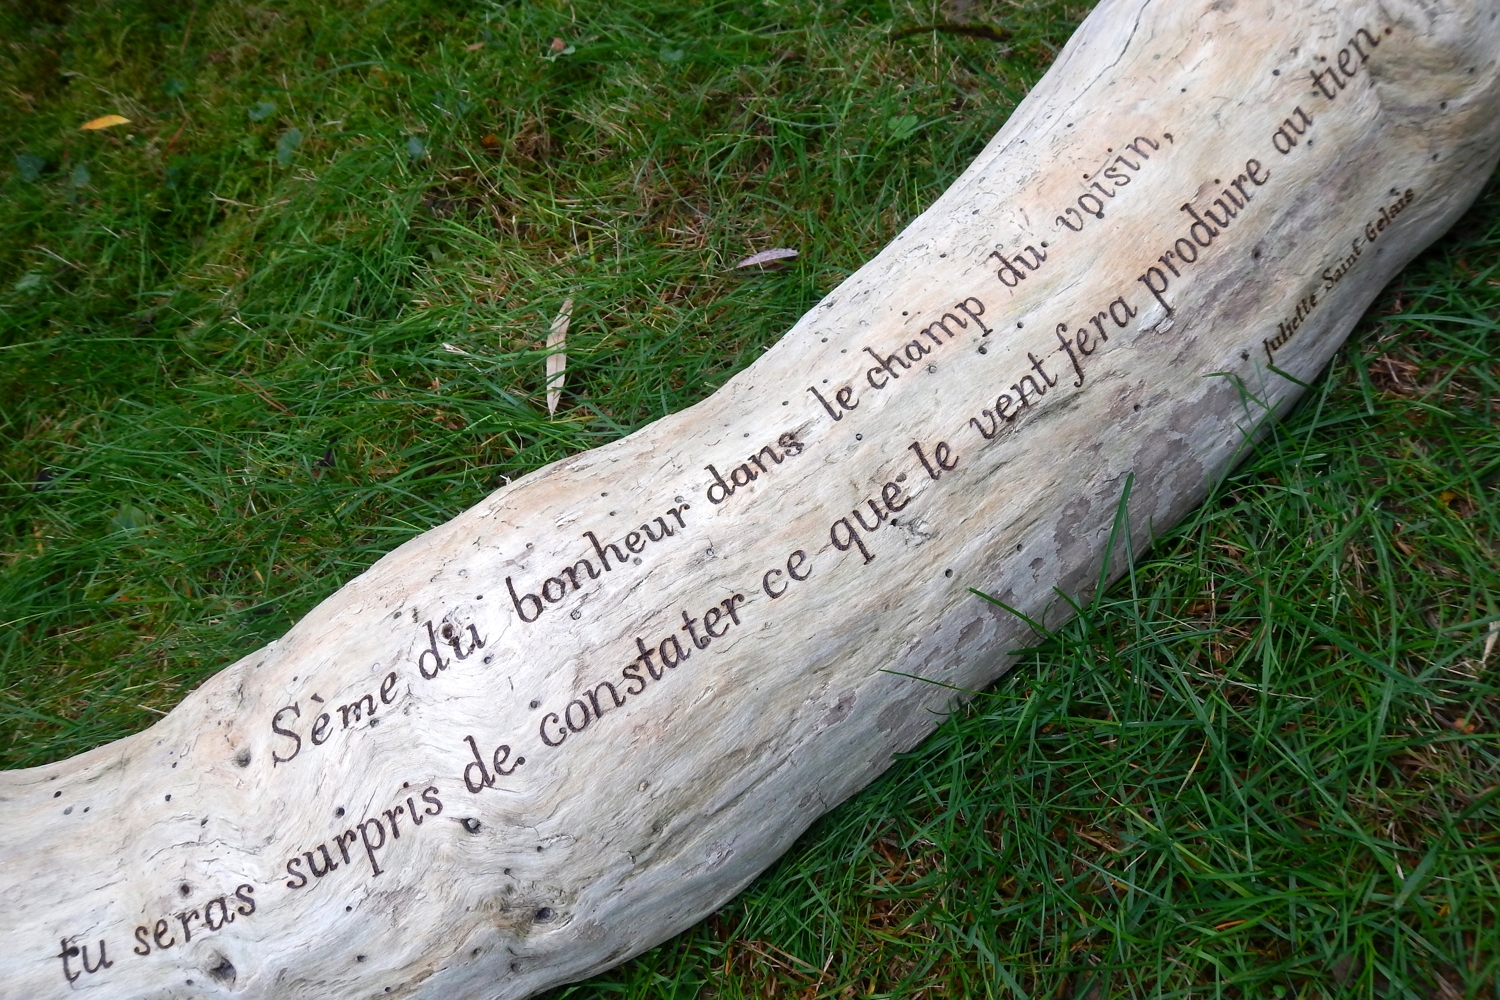 Sème du bonheur dans le champ du voisin,
tu seras surpris de constater ce que le vent fera produire au tien.
Juliette Saint Gelais